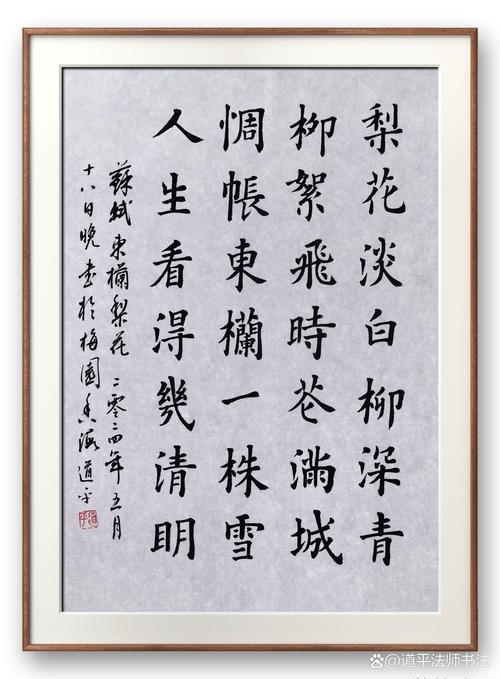 梨花淡白柳深青
柳絮飛時花滿城
惆悵東欄一株雪
人生看得幾清明
蘇軾東欄梨花 二零二四年五月
十八日晚書於梅園香海道平
道平
@道平法师书法